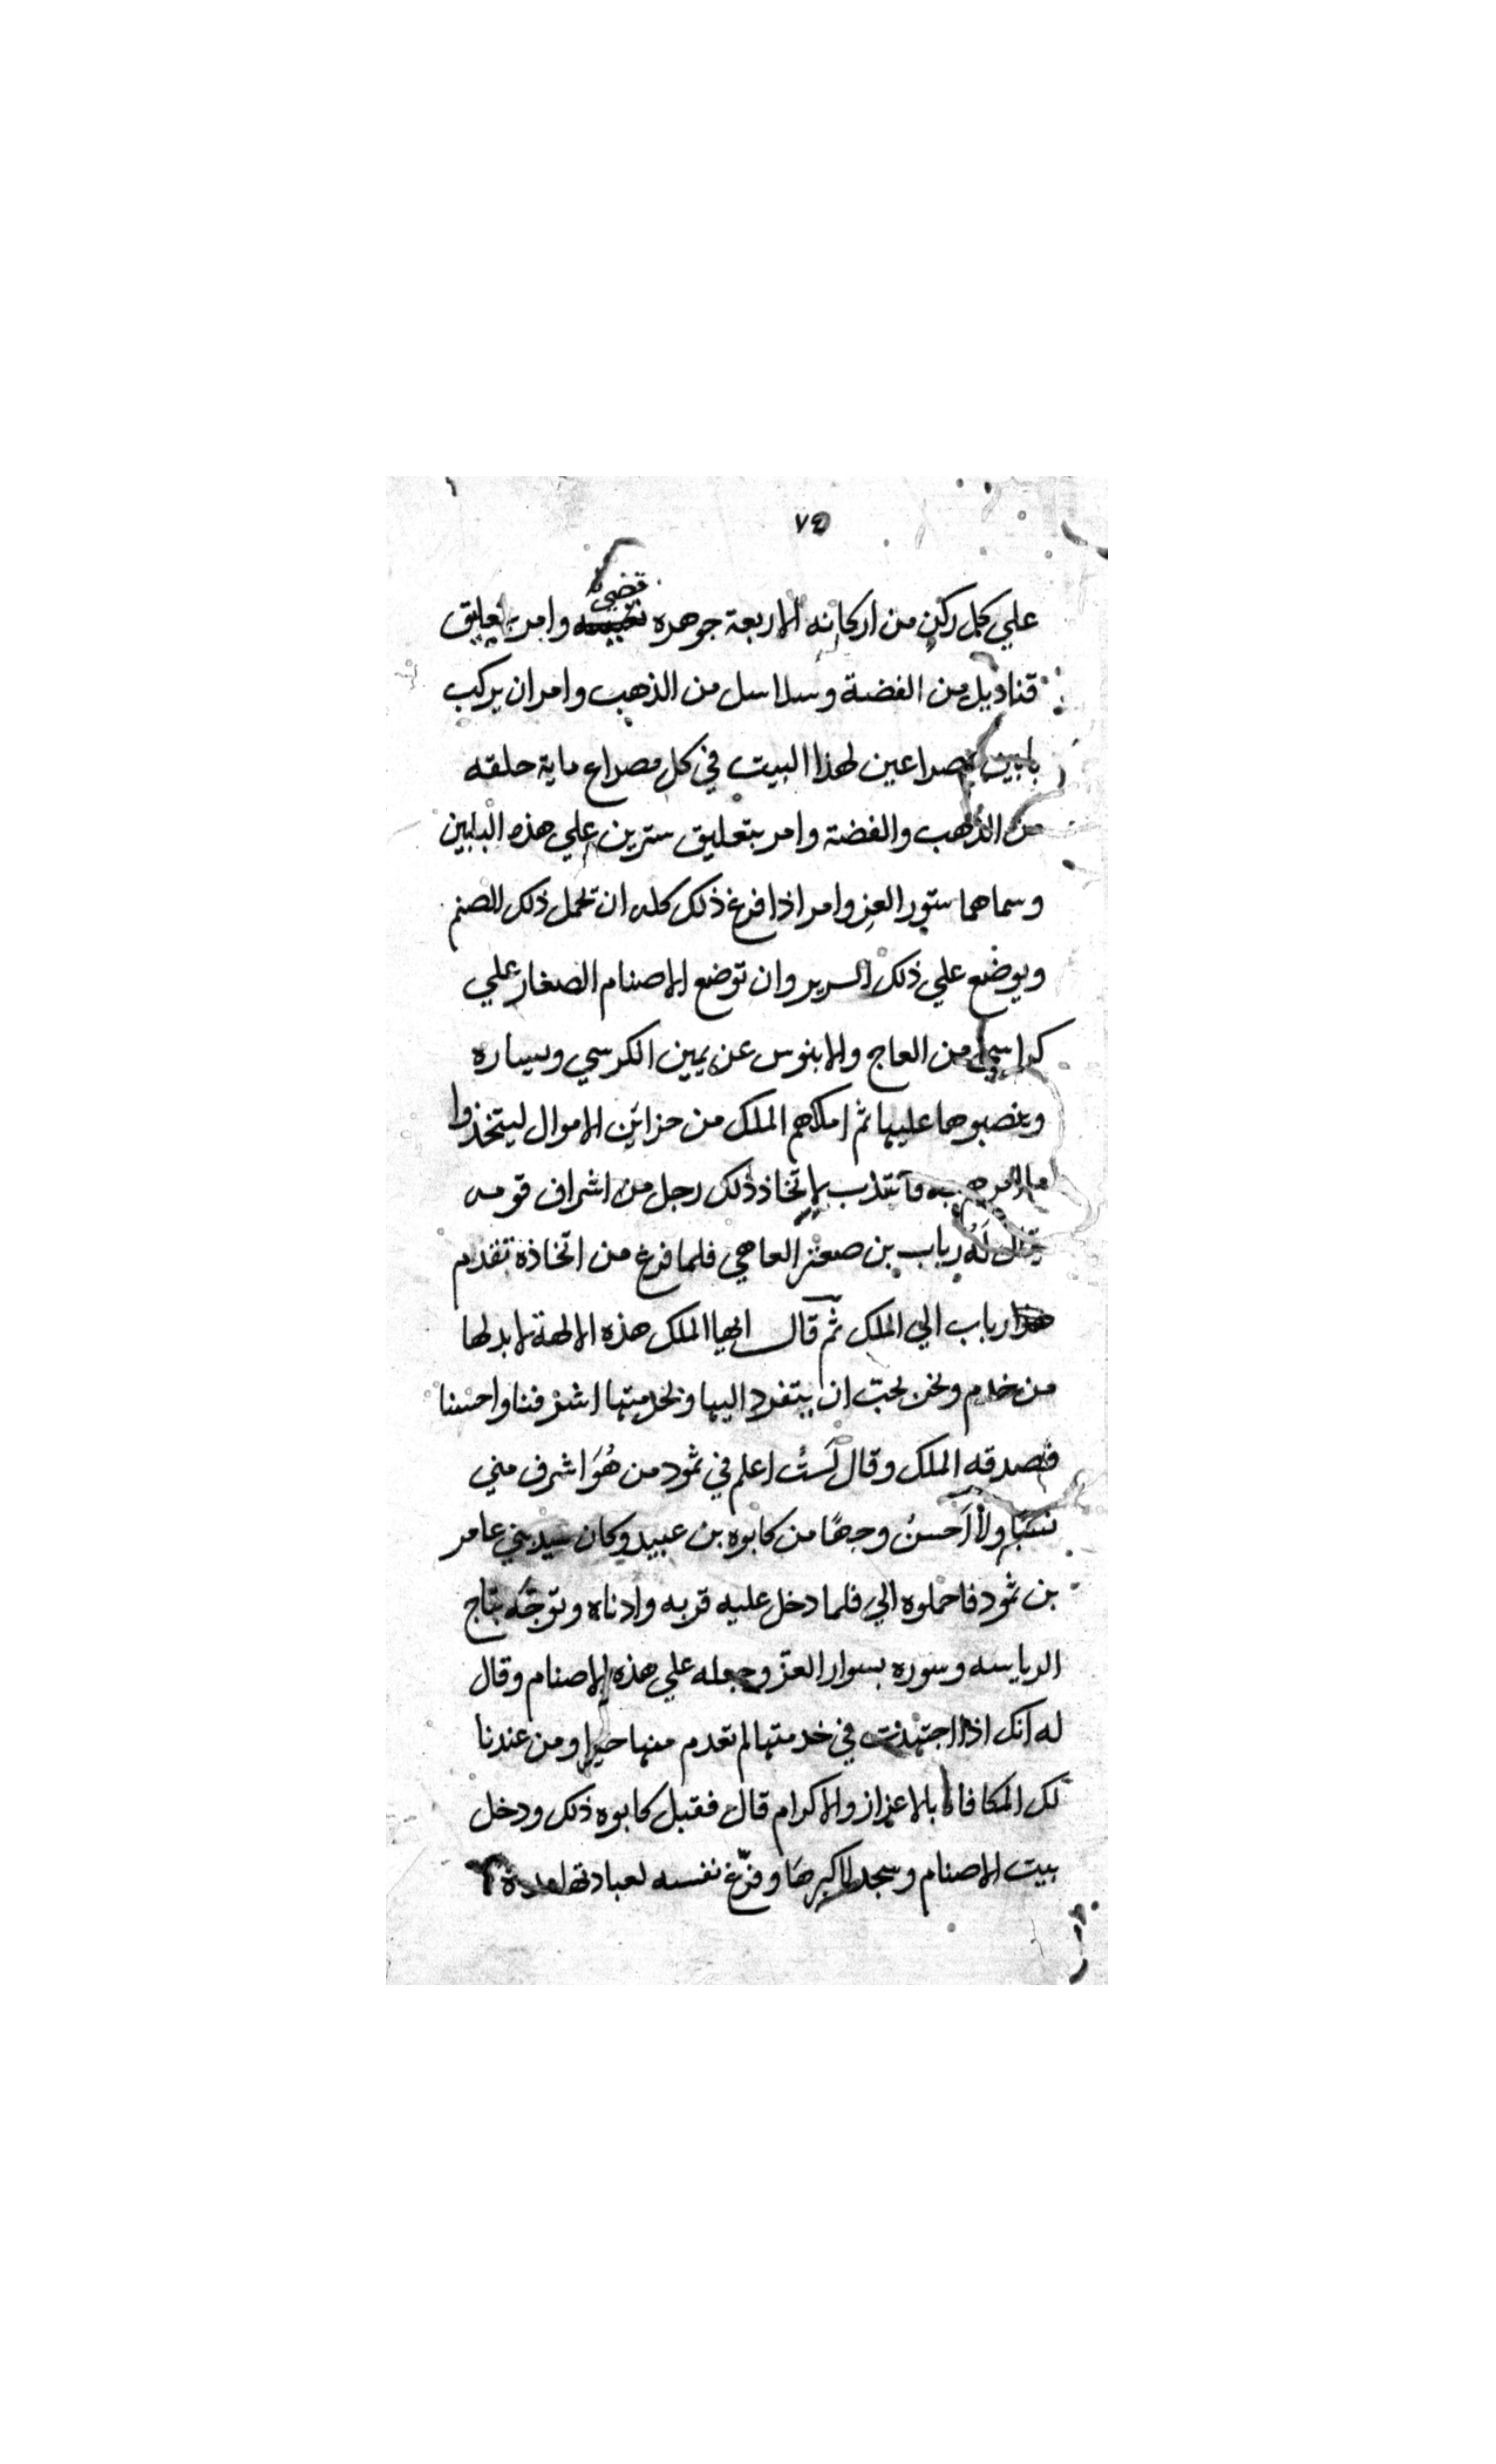 ٧٤
علي كل ركن من اركانه الاربعة جوهره تضي وامر بتعليق
قناديل من الفضة وسلاسل من الذهب وامر ان يركب
بابين مصراعين لهذا البيت في كل مصراع ماية حلقه
من الذهب والفضة وامر بتعليق سترين علي هذه البابين
وسماهما ستور العز وامر اذا فرغ ذلك كله ان تحمل ذلك للصنم
ويوضع علي ذلك السرير وان توضع الاصنام الصغار علي
كراسي من العاج والابنوس عن يمين الكرسي ويساره
وينصبوها عليها ثم امكلهم الملك من خزاين الاموال ليتخذوا
ما امرهم به فانتدب لاتخاذ ذلك رجل من اشراف قومه
يقال له رباب بن صعتر فلما فرغ من اتخاذه تقدم
هذا رباب الي الملك ثم قال ايها الملك هذه الالهة لابد لها
من خدم ونحن نحب ان يتفرد اليها ونخدمتها اشرفنا واحسننا
فصدقه الملك وقال لست اعلم في ثمود من هو اشرف مني
نسبا ولا احسن وجها من كابوه بن عبيد وكان سيد بني عامر
بن ثمود فاحملوه الي فلما دخل عليه قربه وادناه وتوجه بتاج
الرياسه وسوره بسوار العز وجعله علي هذه الاصنام وقال
له انك اذا اجتهدت في خدمتها لم تعدم منها خيرا ومن عندنا
لك المكافاة بالاعزاز والاكرام قال فقبل كابوه ذلك ودخل
بيت الاصنام وسجد لاكبرها وفرغ نفسه لعبادتها مدة